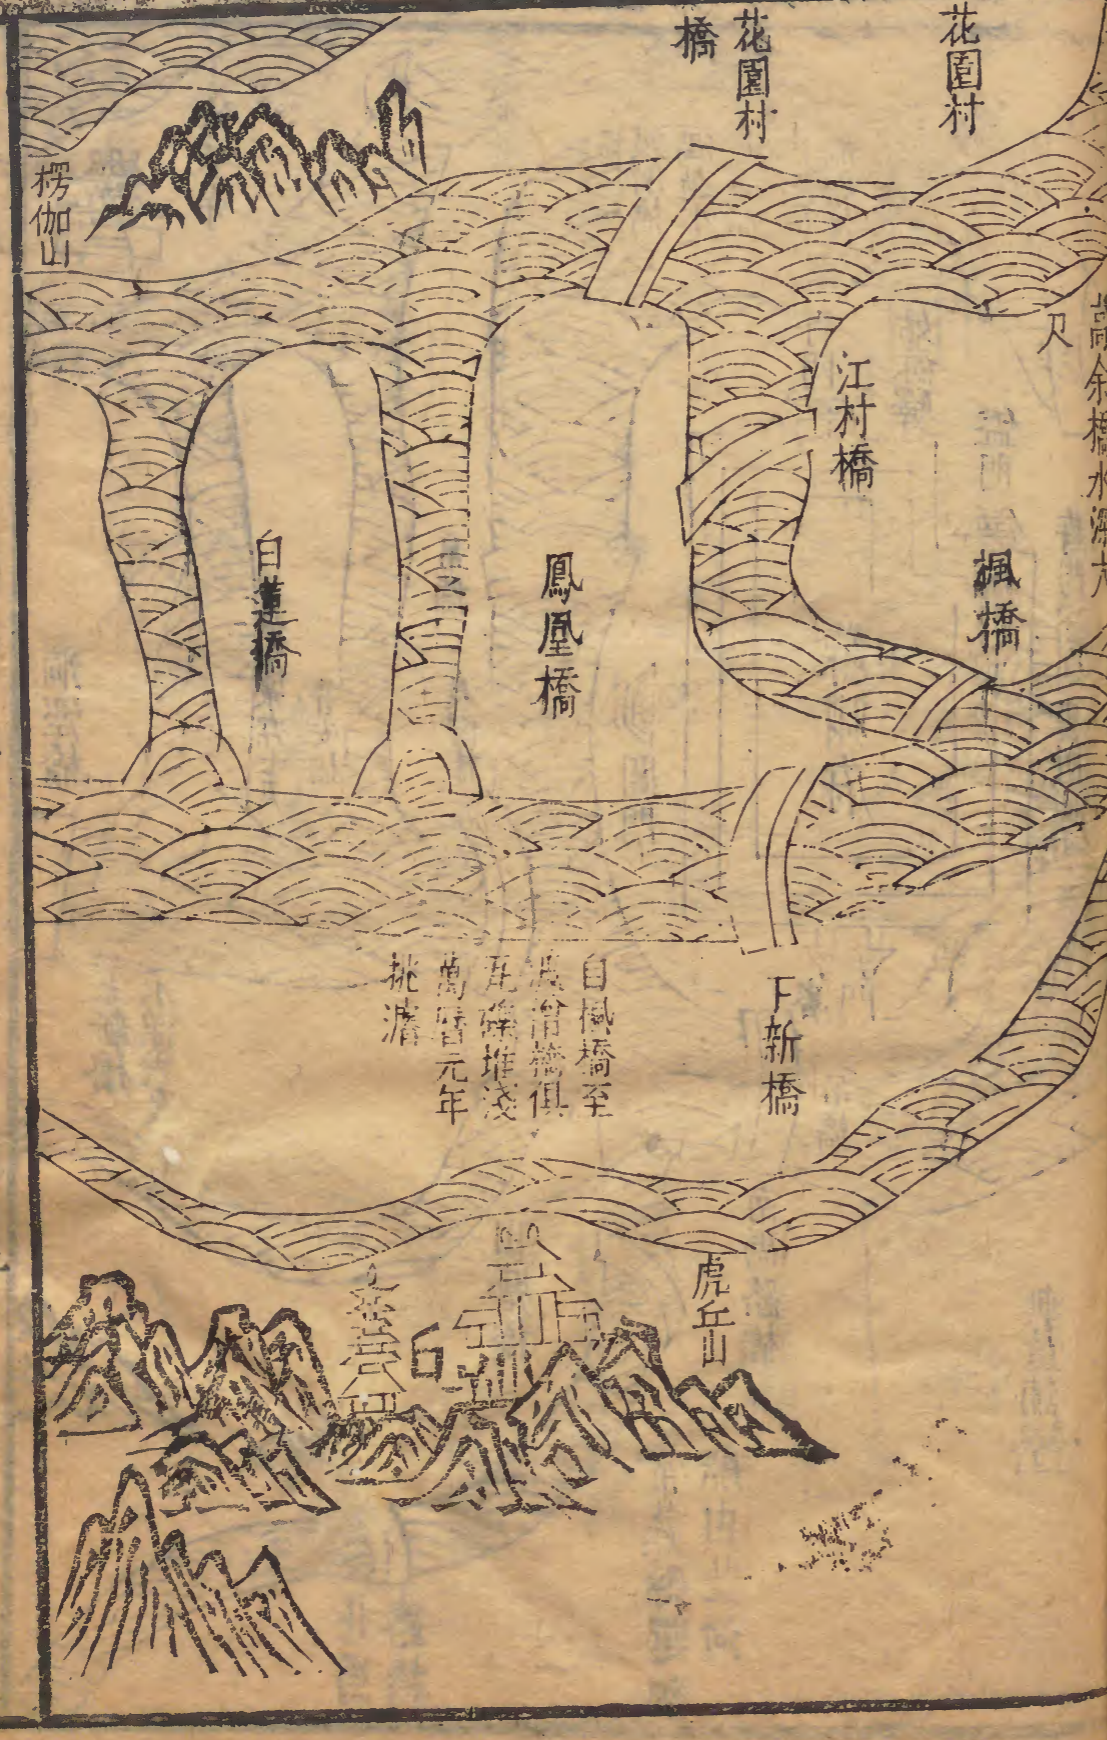 花園村
花園村
橋
楞伽山
啇余橋水深六
尺
江村橋
楓橋
鳳凰橋
白蓮橋
下新橋
自楓橋至
橋俱
瓦礫堆淺
萬曆元年
挑濬
虎丘山